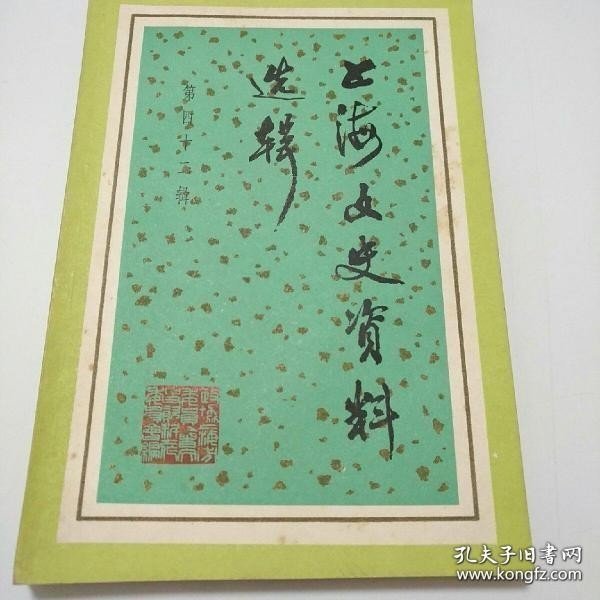 上海文史资料
选辑
第四十二辑
孔夫子旧书网
www.kongfz.com